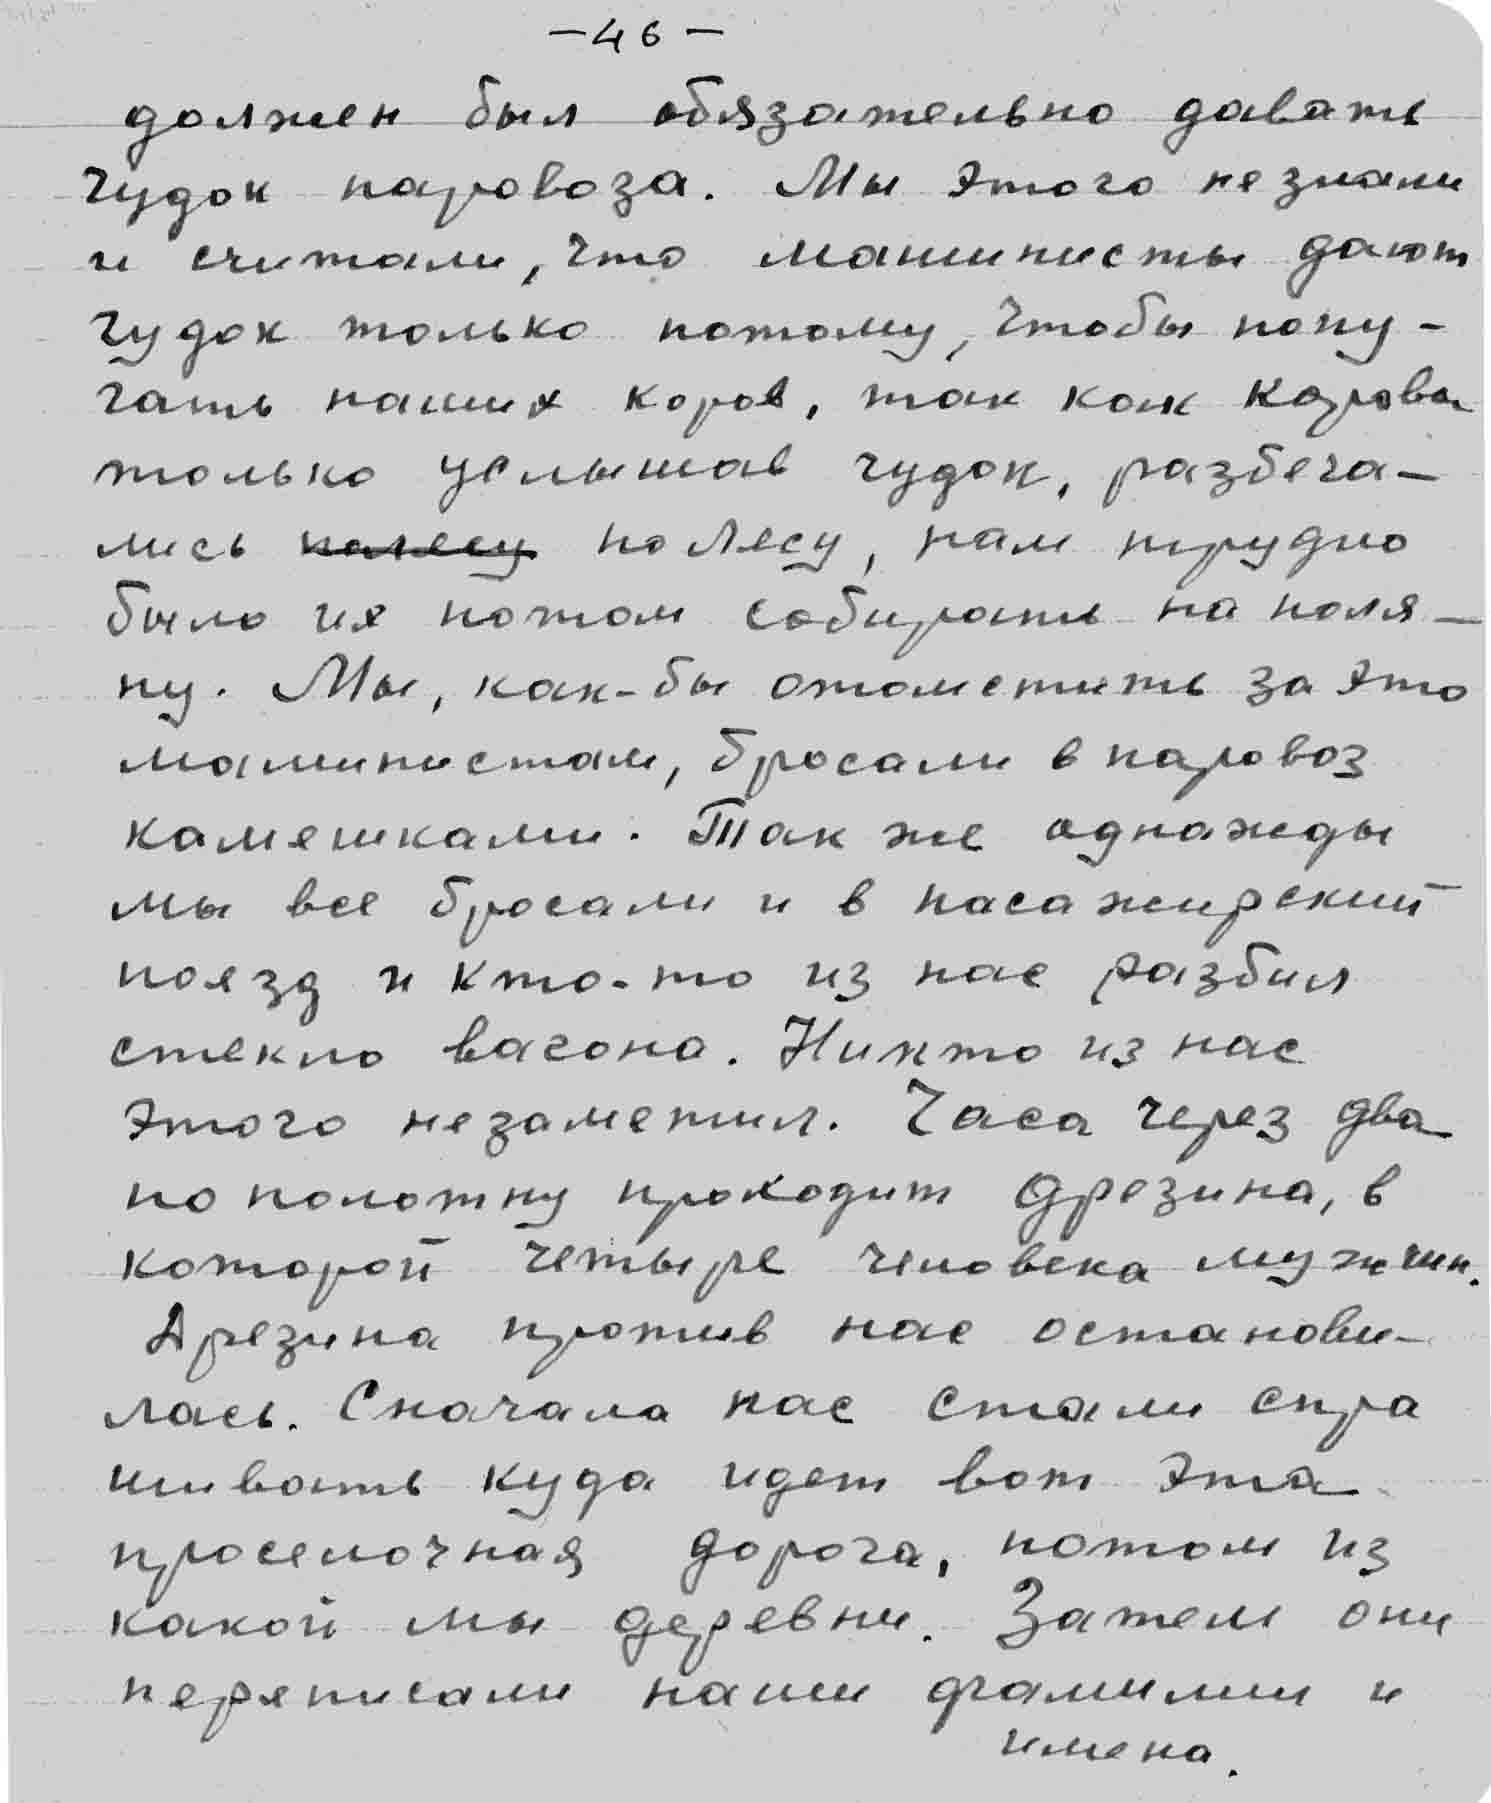 -46-
должен был обязательно давать
гудок паровоза. Мы этого незнали
и считали, что машинисты дают
гудок только потому, чтобы попу-
гать наших коров, так как корова
только услышав гудок, разбега-
лись полесу по лесу, нам трудно
было их потом собирать на поля-
ну. Мы, как-бы отомстить за это
машинистам, бросали в паровоз
камешками. Так же однажды
мы все бросали и в пасажирский
поезд и кто-то из нас разбил
стекло вагона. Никто из нас
этого незаметил. Часа через два
по полотну проходит дрезина, в
которой четыре человека мужчин.
Дрезина против нас останови-
лась. Сначала нас стали спра
шивать куда идет вот эта
проселочная дорога, потом из
какой мы деревни. Затем они
переписали наши фамилии и
имена.